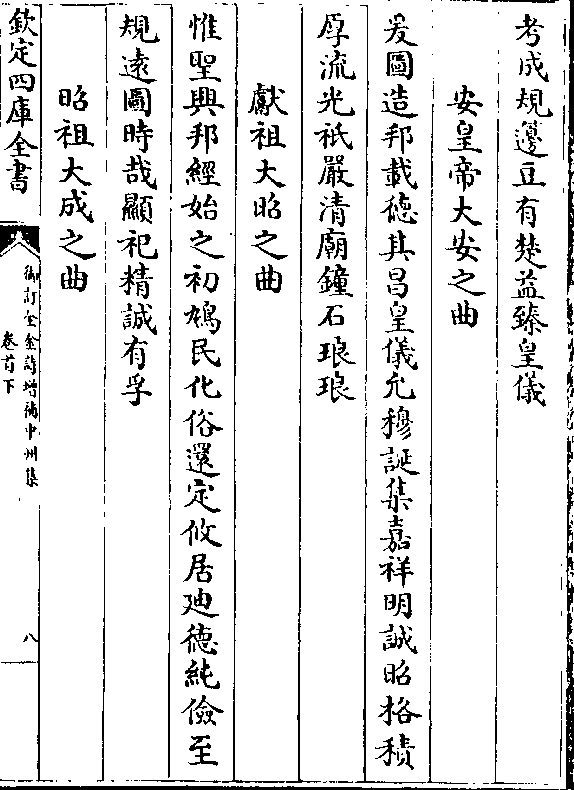 考成規邊豆有楚益臻皇儀
安皇帝大安之曲
爰圖造邦載徳其昌皇儀允穆誕集嘉祥明誠昭格積
厚流光祇嚴清廟鐘石琅琅
獻祖大昭之曲
惟聖興邦經始之初鳩民化俗還定攸居廸徳純儉至
規遠圖時哉顯祀精誠有孚
昭祖大成之曲
欽定四庫全書
御訂全金詩增補中州集
卷首下
八